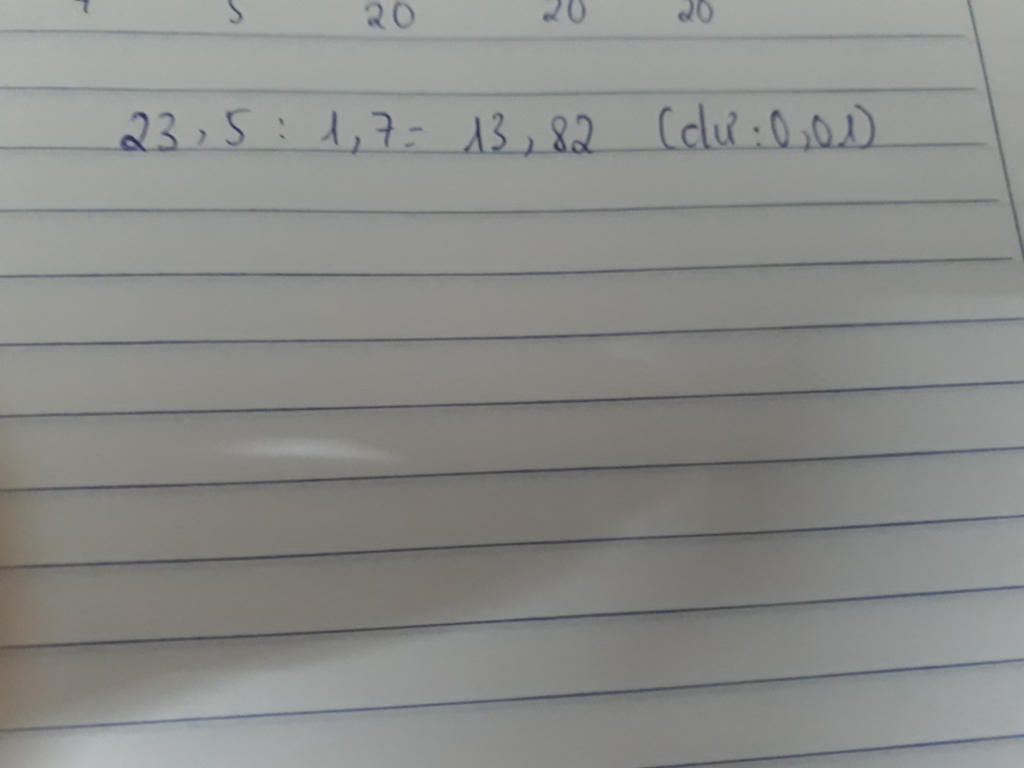 5 20 20 20
23,5 : 1,7 = 13,82 (dư : 0,01)